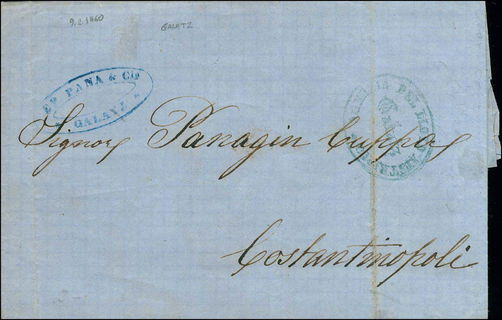 9.2.1860
GALATZ
PANA & CO
GALATZ
Signor Panagin Cuppa
Costantinopoli